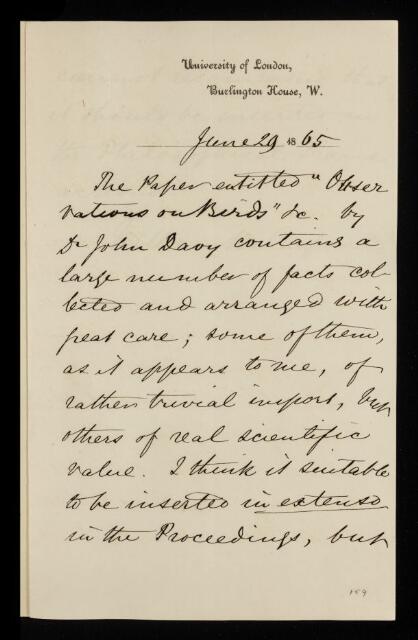 University of London,
Burlington House, W.
June 29 1865
The Paper entitled "Obser
vations on Birds" &c. by
Dr John Davy contains a
large number of facts col-
lected and arranged with
great care; some of them,
as it appears to me, of
rather trivial import, but
others of real scientific
value. I think it suitable
to be inserted in extenso
in the Proceedings, but
159